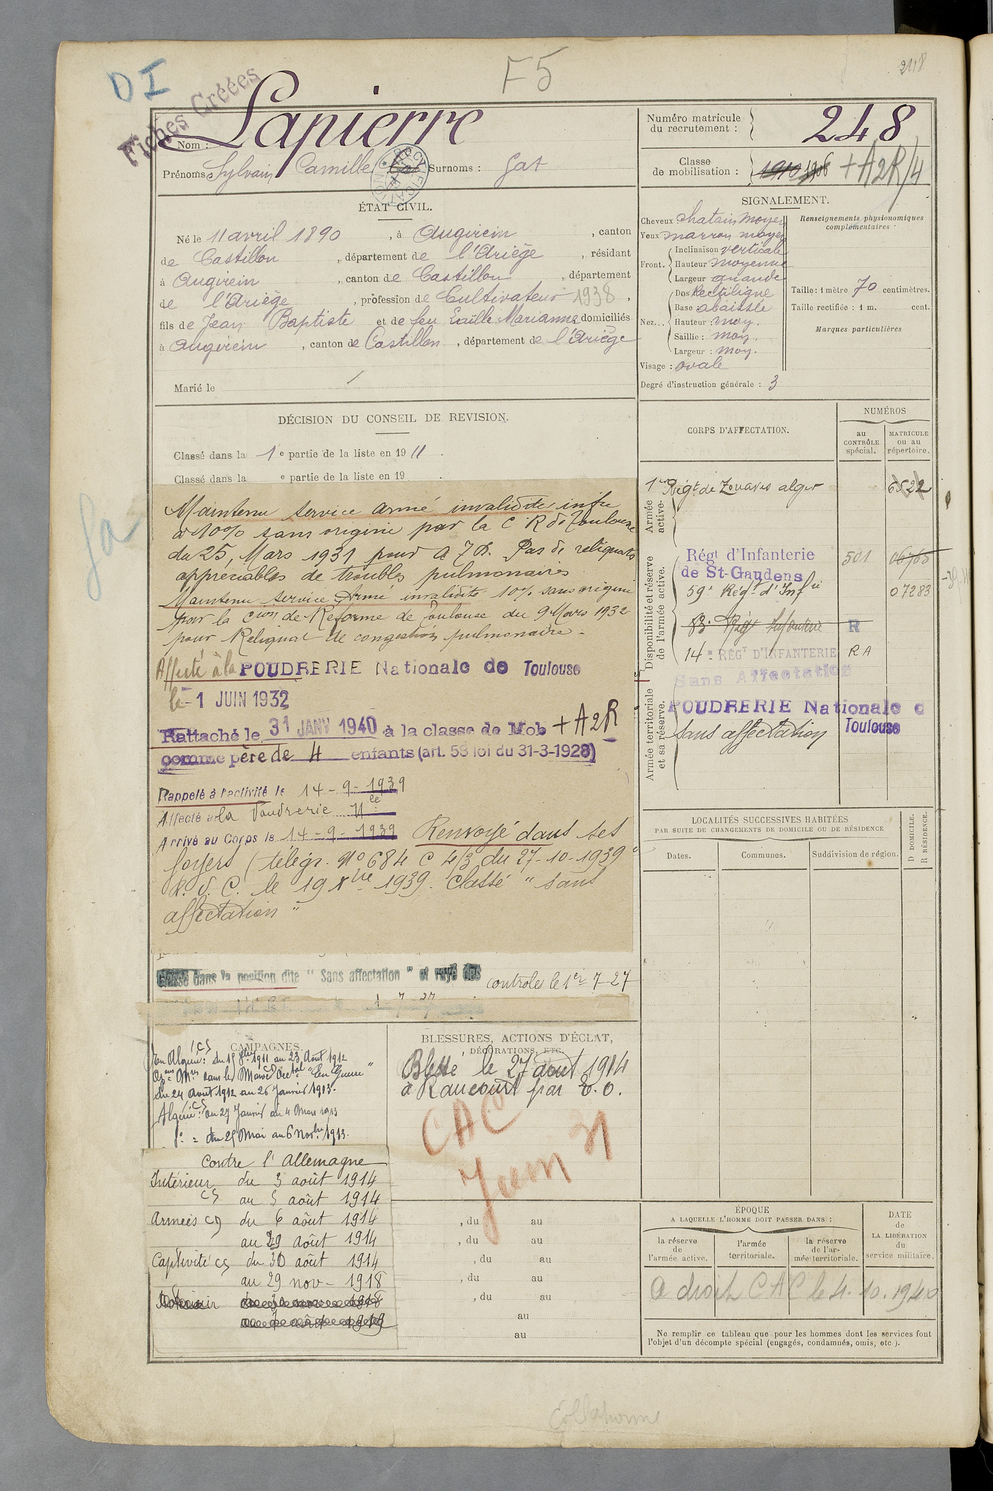 D I
F5
248
Fiches Créées
Nom : Lapierre
Prénoms : Sylvain Camille Surnoms : Gat
Numéro matricule du recrutement : 248
Classe de mobilisation : 1910 + A2R/4
ÉTAT CIVIL.
Né le 11 avril 1890, à Augirein, canton
de Castillon, département de l'Ariège, résidant
à Augirein, canton de Castillon, département
de l'Ariège, profession de Cultivateur 1938,
fils de Jean Baptiste et de feu Marianne domiciliés
à Augirein, canton de Castillon, département de l'Ariège
Marié le /
SIGNALEMENT.
Cheveux chatain moyen
Yeux marron moyen
Front. Inclinaison verticale
Hauteur moyenne
Largeur grande
Nez. Dos Rectiligne
Base abaissée
Hauteur moy.
Saillie : moy.
Largeur : moy.
Visage : ovale
Degré d'instruction générale : 3
Renseignements physionomiques complémentaires :
Taille : 1 mètre 70 centimètres.
Taille rectifiée : 1 m. cent.
Marques particulières
DÉCISION DU CONSEIL DE REVISION.
Classé dans la 1e partie de la liste en 1911.
Classé dans la e partie de la liste en 19
Maintenu service armé invalidité infre
à 10% sans origine par la C R de Toulouse
du 25, Mars 1931 pour
Pas de reliquats
appréciables de troubles pulmonaires
Maintenu Service Armé invalidité 10% sans origine
par la Cion de Réforme de Toulouse du 9 Mars 1932
pour Reliquat de congestion pulmonaire.
Affecté à la POUDRERIE Nationale de Toulouse
le 1 JUIN 1932
Rattaché le 31 JANV 1940 à la classe de Mob + A2R
comme père de 4 enfants (art. 58 loi du 31-3-1928)
Rappelé à l'activité le 14-9-1939
Affecté à la Poudrerie
Arrivé au Corps le 14-9-1939 Renvoyé dans ses
foyers (télégr. No 684 C 4/3 du 27-10-1939
le 19 Xbre 1939. Classé "sans
affectation"
Classé dans la position dite "Sans affectation" et rayé des contrôles le 1er-7-27
CORPS D'AFFECTATION.
NUMÉROS
au CONTRÔLE spécial.
MATRICULE ou au répertoire.
Armée active.
1er Régt de Zouaves alger 6522
Disponibilité et réserve de l'armée active.
Régt d'Infanterie de St-Gaudens 501 06765
59e Régt d'Infie 07283
83e Régt Infanterie R
14e RÉGt D'INFANTERIE RA
Sans Affectation
Armée territoriale et sa réserve.
POUDRERIE Nationale
Toulouse
Sans affectation
LOCALITÉS SUCCESSIVES HABITÉES
PAR SUITE DE CHANGEMENTS DE DOMICILE OU DE RÉSIDENCE
Dates.
Communes.
Subdivision de région.
D DOMICILE.
R RÉSIDENCE.
CAMPAGNES.
En Algérie CS : du 1911 au 23 Août 1912
dans le Maroc "En Guerre"
du 24 août 1912 au 26 Janvier 1913.
Algérie CS : du 27 Janvier au 4 Mars 1913
du 25 Mai au 6 Novbre 1913.
Contre l'Allemagne
Intérieur CS du 3 août 1914
au 5 août 1914
Armées CD du 6 août 1914
au 29 août 1914
Captivité CS du 30 août 1914
au 29 nov- 1918
BLESSURES, ACTIONS D'ÉCLAT, DÉCORATIONS, ETC.
Blessé le 27 août 1914
à Raucourt par E. O.
CAC
Juin 31
, du au
, du au
, du au
, du au
, du au
au
au
ÉPOQUE
A LAQUELLE L'HOMME DOIT PASSER DANS :
la réserve de l'armée active.
l'armée territoriale.
la réserve de l'armée territoriale.
DATE de LA LIBÉRATION du service militaire.
a droit CAC le 4. 10. 1940
Ne remplir ce tableau que pour les hommes dont les services font
l'objet d'un décompte spécial (engagés, condamnés, omis, etc.).